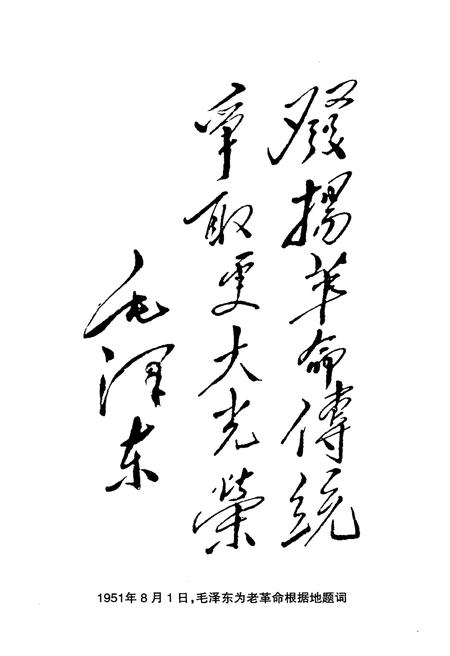 發揚革命傳統
爭取更大光榮
毛泽东
1951年8月1日,毛泽东为老革命根据地题词